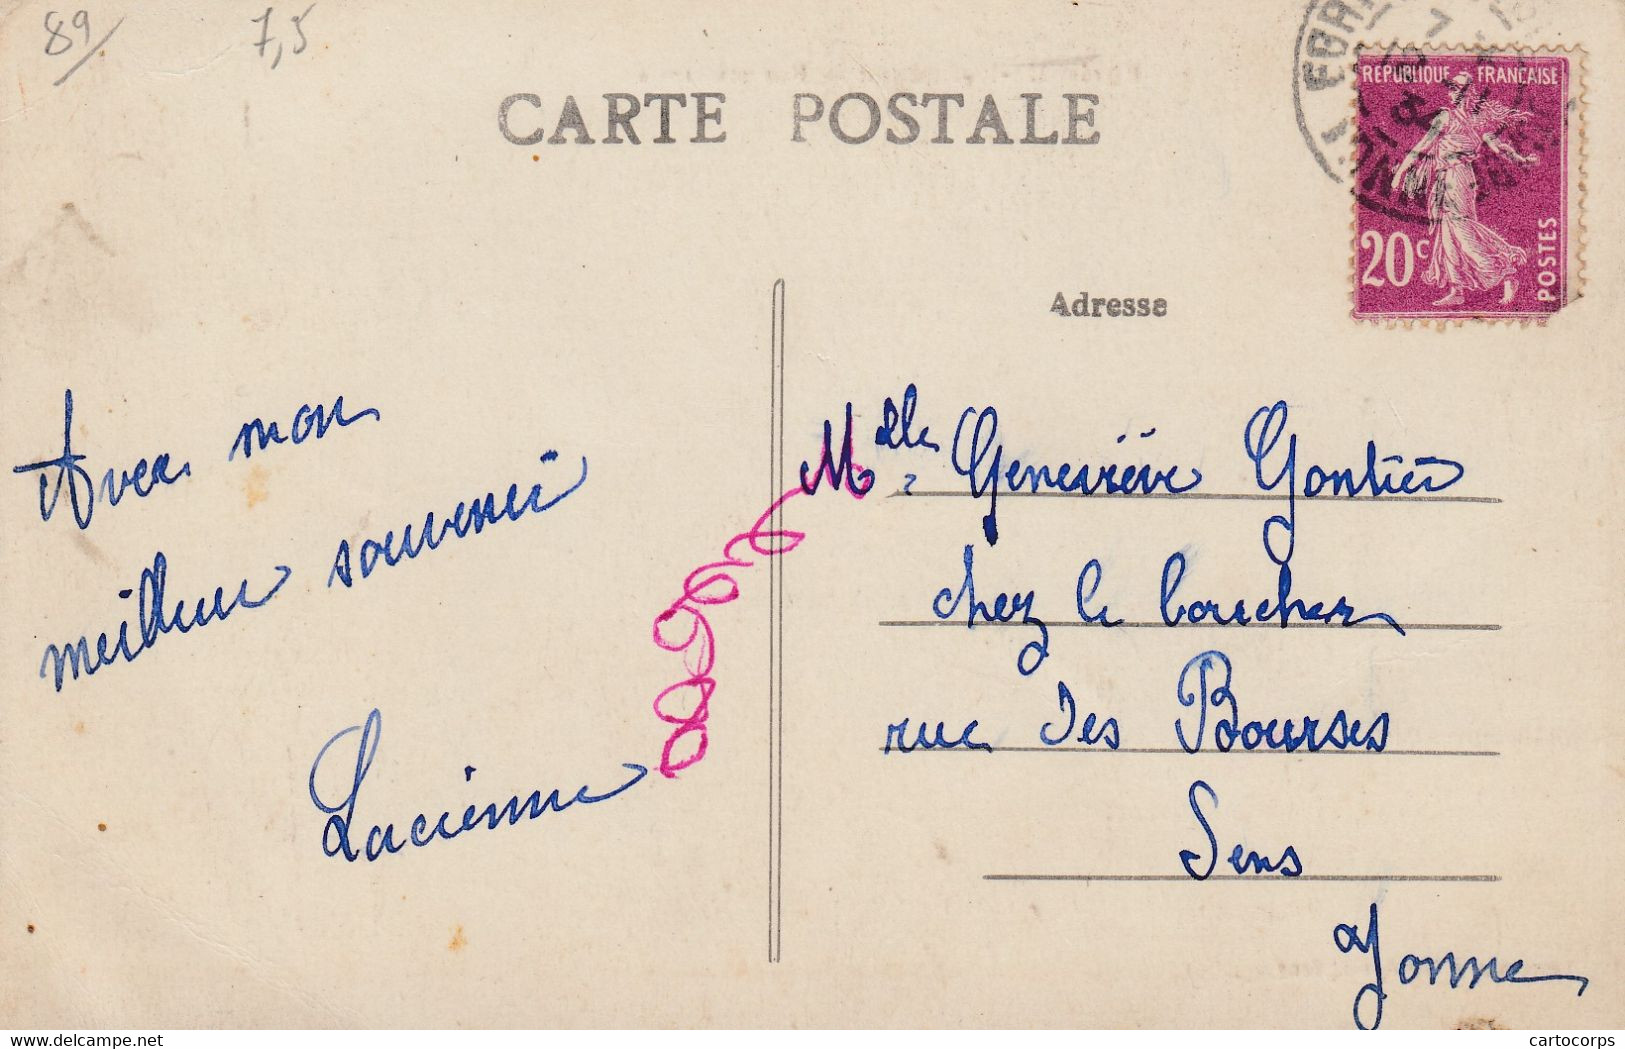 89
7,5
CARTE POSTALE
REPUBLIQUE FRANÇAISE
20c
POSTES
Adresse
Avec mon
meilleur souvenir
Lucienne
Melle Geneviève Gontier
chez le boucher
rue des Bourses
Sens
Yonne
cartocorps